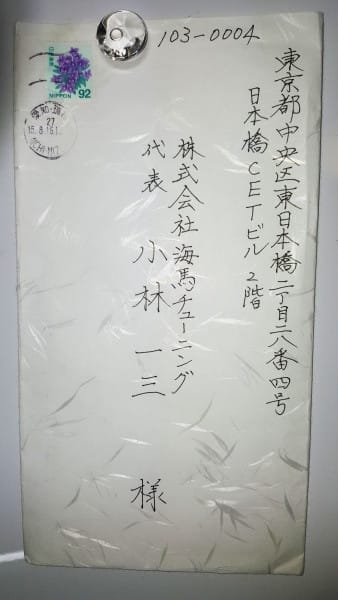 103-0004
東京都中央区東日本橋二丁目二八番四号
日本橋CETビル2階
株式会社海馬チューニング
代表 小林 一三 様
日本郵便
NIPPON 92
27